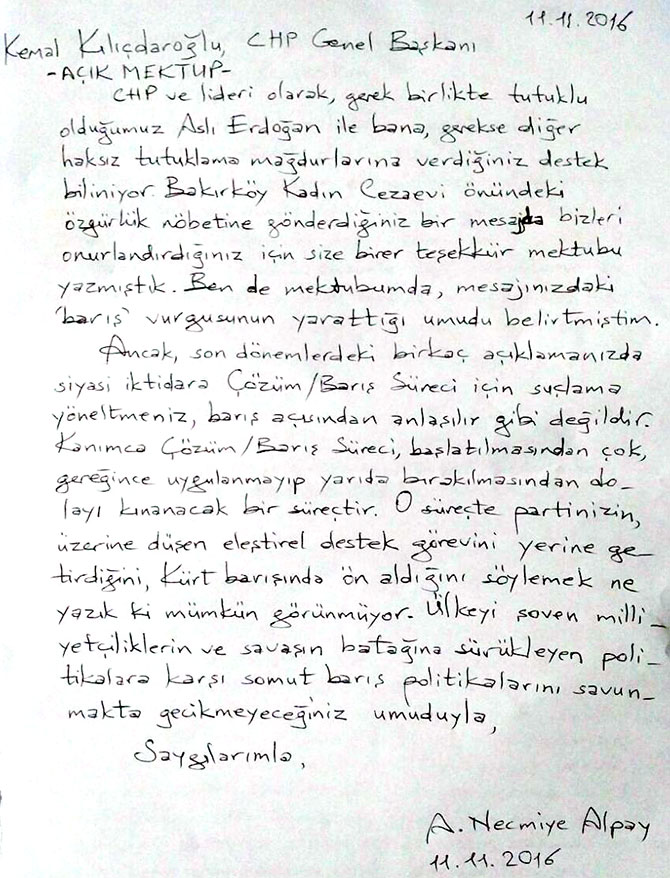 11.11.2016
Kemal Kılıçdaroğlu, CHP Genel Başkanı
-AÇIK MEKTUP-
CHP ve lideri olarak, gerek birlikte tutuklu
olduğumuz Aslı Erdoğan ile bana, gerekse diğer
haksız tutuklama mağdurlarına verdiğiniz destek
biliniyor. Bakırköy Kadın Cezaevi önündeki
özgürlük nöbetine gönderdiğiniz bir mesajda bizleri
onurlandırdığınız için size birer teşekkür mektubu
yazmıştık. Ben de mektubumda, mesajınızdaki
'barış' vurgusunun yarattığı umudu belirtmiştim.
Ancak, son dönemlerdeki birkaç açıklamanızda
siyasi iktidara Çözüm/Barış Süreci için suçlama
yöneltmeniz, barış açısından anlaşılır gibi değildir.
Kanımca Çözüm/Barış Süreci, başlatılmasından çok,
gereğince uygulanmayıp yarıda bırakılmasından do-
layı kınanacak bir süreçtir. O süreçte partinizin,
üzerine düşen eleştirel destek görevini yerine ge-
tirdiğini, Kürt barışında ön aldığını söylemek ne
yazık ki mümkün görünmüyor. Ülkeyi şoven milli-
yetçiliklerin ve savaşın batağına sürükleyen poli-
tikalara karşı somut barış politikalarını savun-
makta gecikmeyeceğiniz umuduyla,
Saygılarımla,
A. Necmiye Alpay
11.11.2016